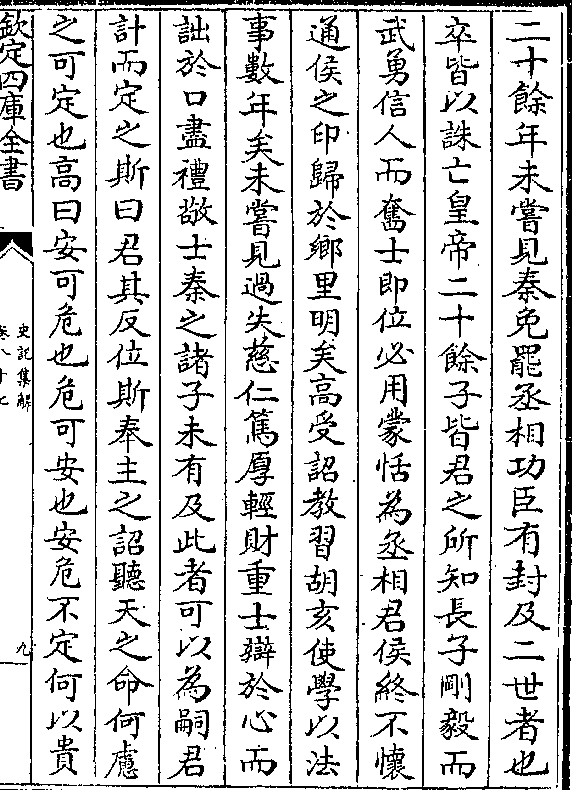 二十餘年未嘗見秦免罷丞相功臣有封及二世者也
卒皆以誅亡皇帝二十餘子皆君之所知長子剛毅而
武勇信人而奮士即位必用蒙恬為丞相君侯終不懷
通侯之印歸於鄉里明矣高受詔教習胡亥使學以法
事數年矣未嘗見過失慈仁篤厚輕財重士辯於心而
詘於口盡禮敬士秦之諸子未有及此者可以為嗣君
計而定之斯曰君其反位斯奉主之詔聽天之命何慮
之可定也高曰安可危也危可安也安危不定何以貴
欽定四庫全書
史記集解
卷八十七
九